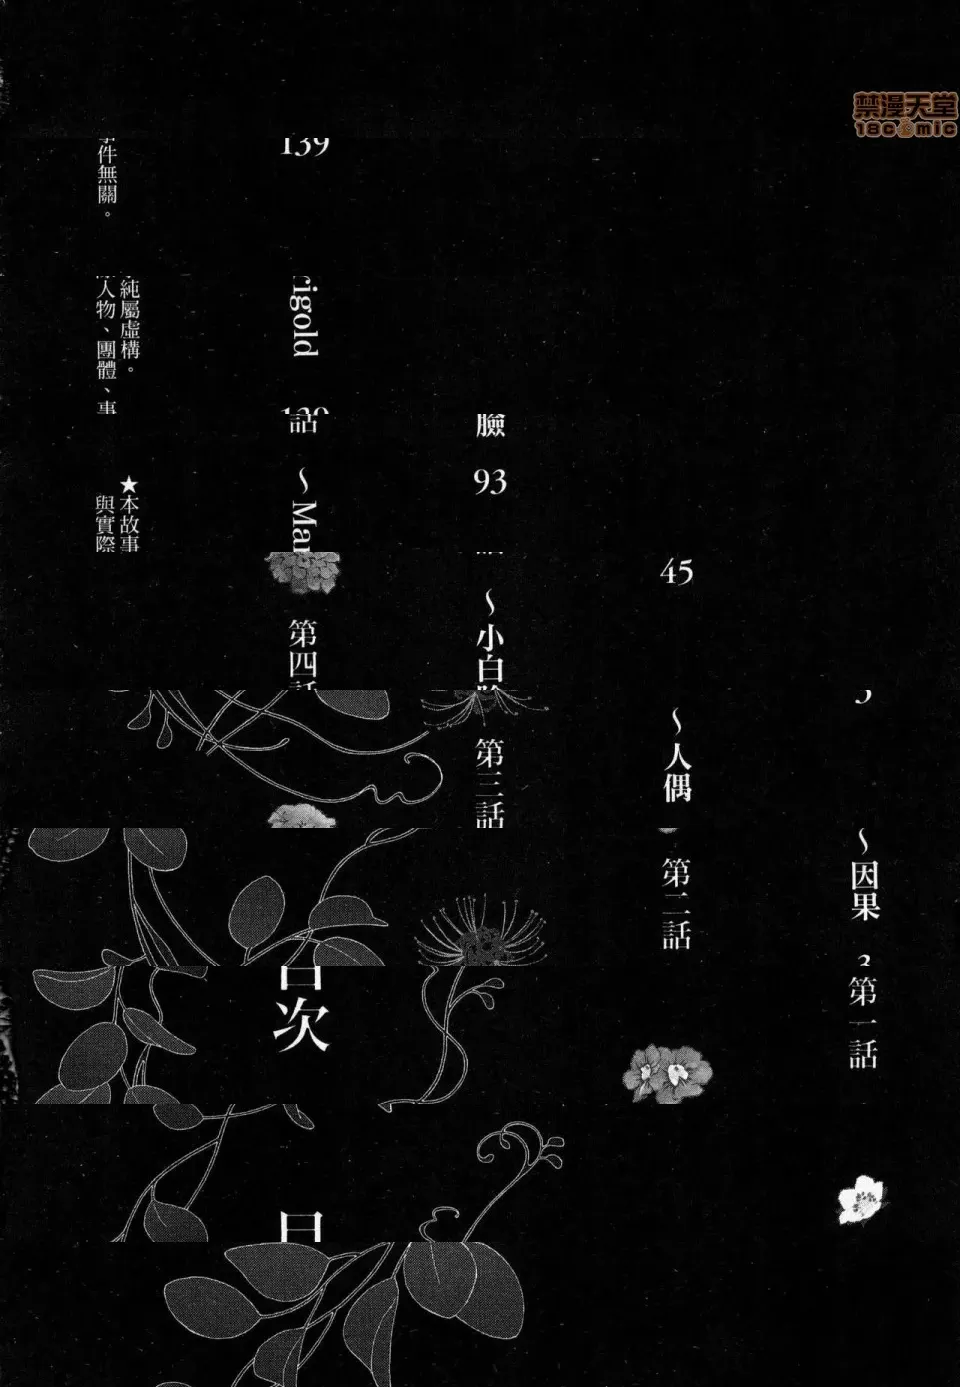 禁漫天堂
18comic
139
件無關。
純屬虛構。
人物、團體、事
rigold
話 ～Mar
臉
93
★本故事
與實際
45
第四話
～小白臉
～人偶
第三話
～因果 3
第二話
目次
第一話